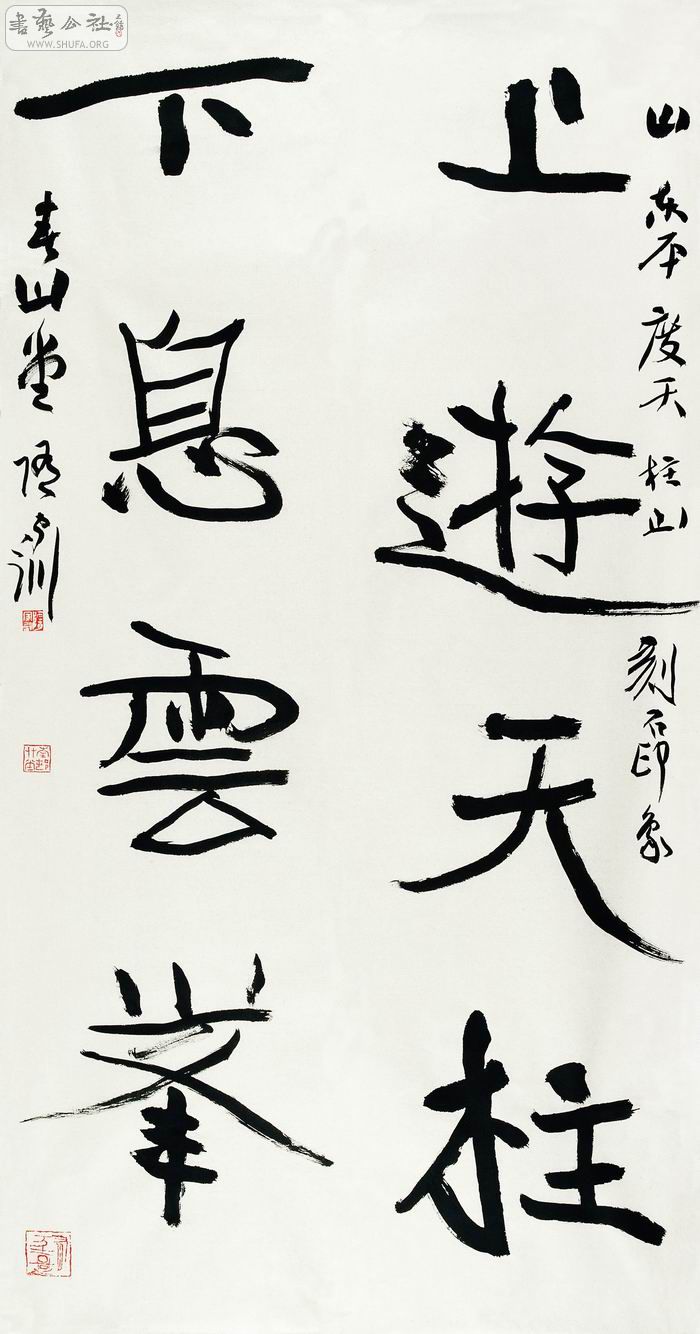 書藝公社
WWW.SHUFA.ORG
山東平度天柱山刻石印象
上遊天柱
下息雲峯
春山堂